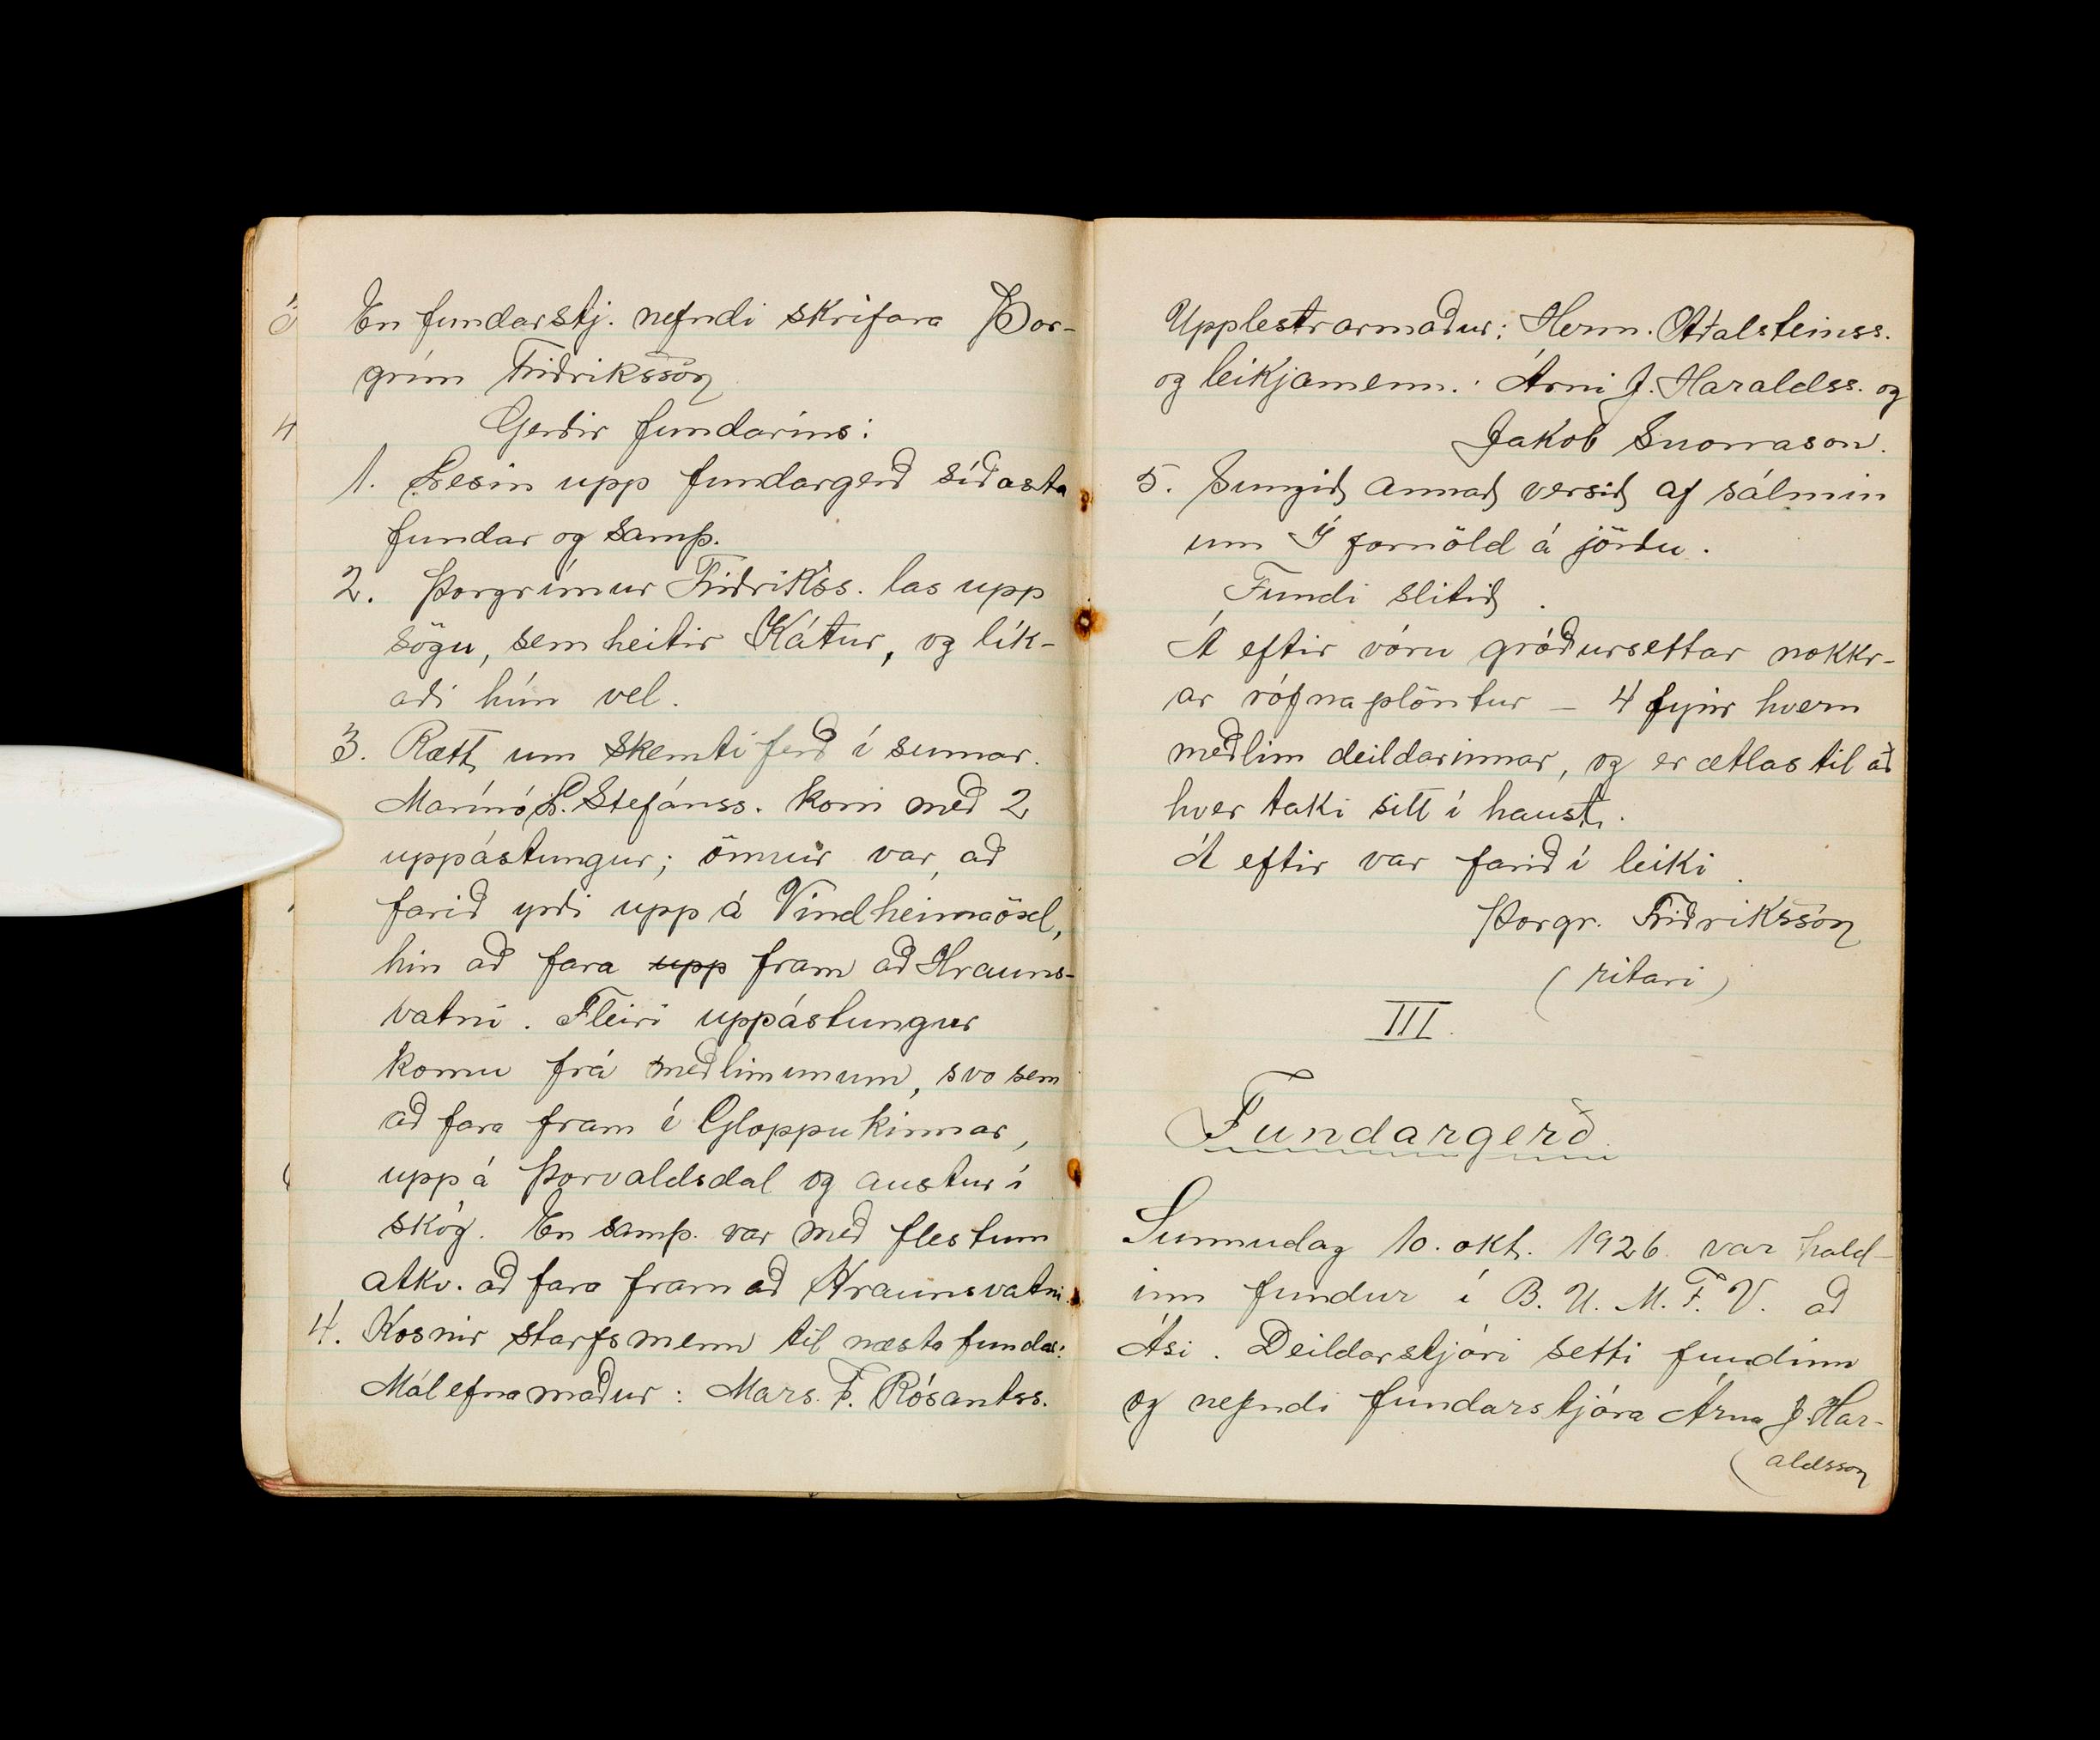 En fundarstj. nefndi skrifara Þor-
grím Friðriksson
Gerðir fundarins:
1. Lesin upp fundargerð síðasta
fundar og samþ.
2. Þorgrímur Friðrikss. las upp
sögu, sem heitir Kátur, og lík-
aði hún vel.
3. Rætt um skemtiferð í sumar.
Marínó L. Stefánss. kom með 2
uppástungur; önnur var, að
farið yrði upp á Vindheimaöxl,
hin að fara upp fram að Hrauns-
vatni. Fleiri uppástungur
komu frá meðlimunum, svo sem
að fara fram í Gloppukinnar,
upp á Þorvaldsdal og austur í
skóg. En samþ. var með flestum
atkv. að fara fram að Hraunsvatni.
4. Kosnir starfsmenn til næsta fundar:
Málefnamaður: Mars. F. Rósantss.
Upplestrarmaður: Herm. Aðalsteinss.
og leikjamenn: Árni J. Haraldss. og
Jakob Snorrason.
5. Sungið annað versið af sálmin
um Í fornöld á jörðu.
Fundi slitið.
Á eftir vóru gróðursettar nokkr-
ar rófnaplöntur – 4 fyrir hvern
meðlim deildarinnar, og er ætlas til að
hver taki sitt í haust.
Á eftir var farið í leiki.
Þorgr. Friðriksson
(ritari)
III.
Fundargerð.
Sunnudag 10. okt. 1926 var hald-
inn fundur í B. U. M. F. V. að
Ási. Deildarstjóri setti fundinn
og nefndi fundarstjóra Árna J. Har-
(aldsson